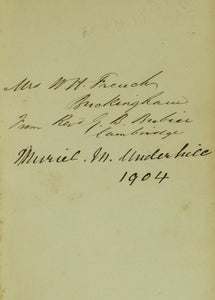 Mrs W. H. French
Buckingham
From Revd G. B. Bubier
Cambridge
Muriel. M. Underhill
1904